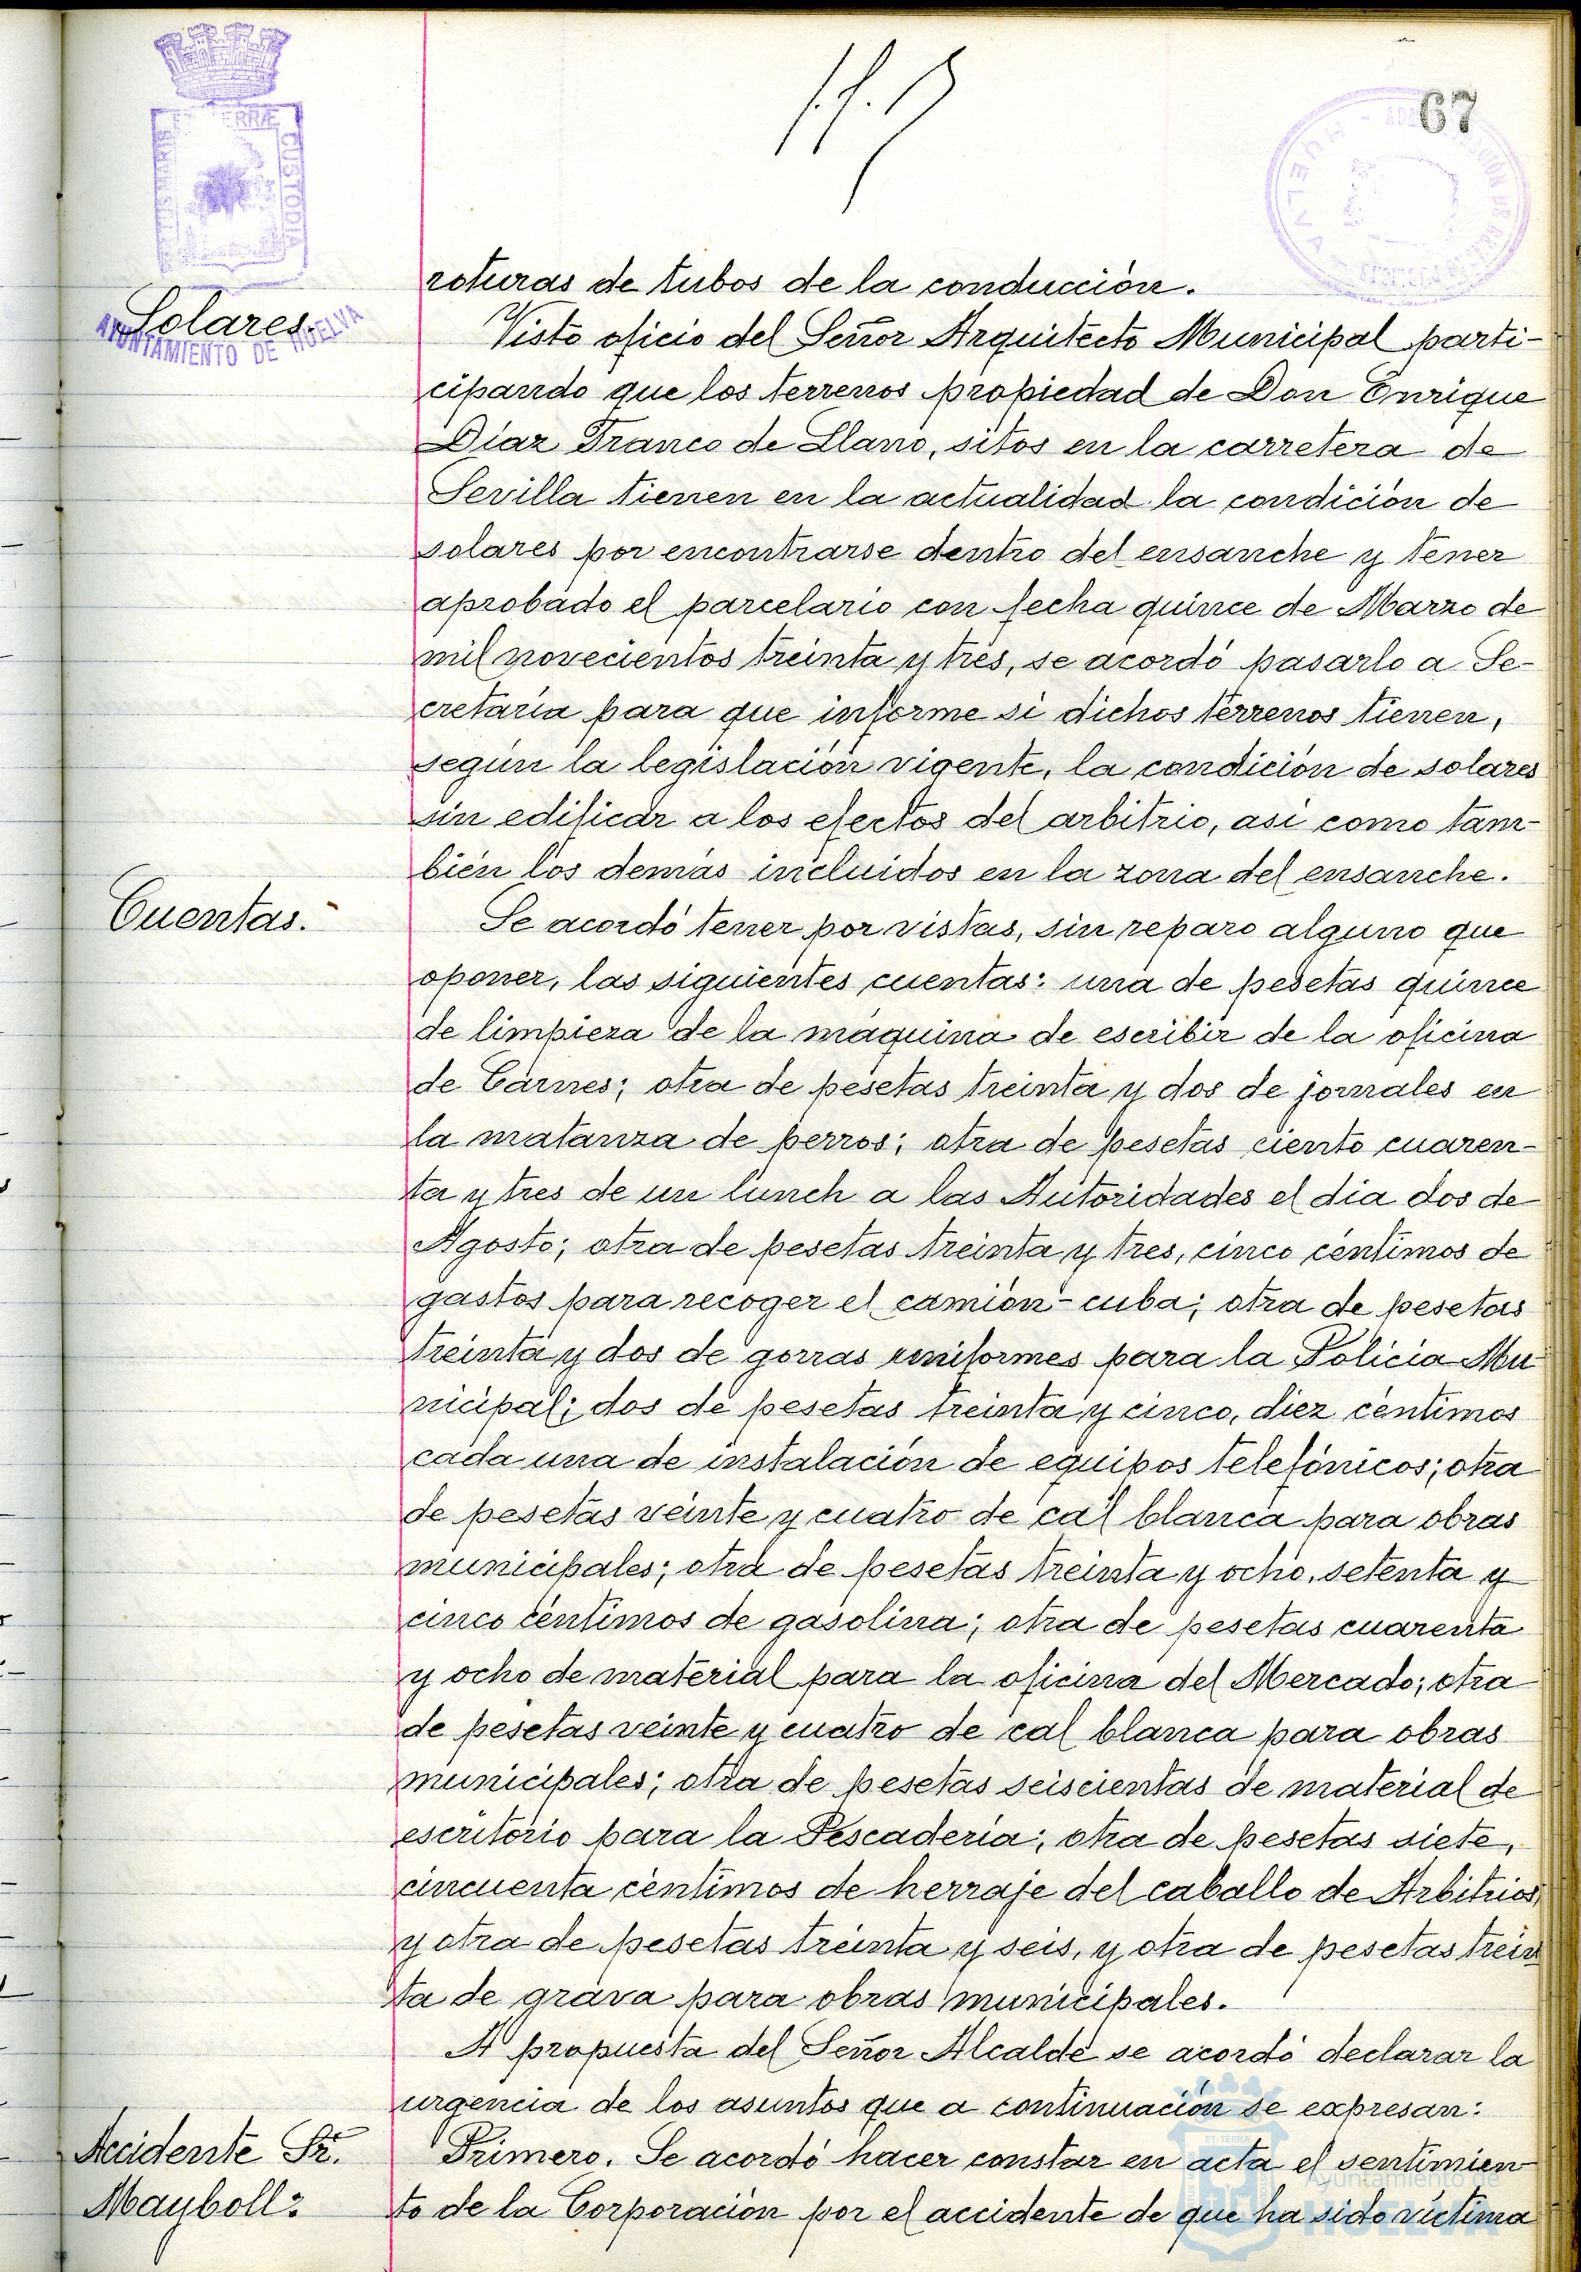 67
roturas de tubos de la conducción.
Solares.
AYUNTAMIENTO DE HUELVA
Visto oficio del Señor Arquitecto Municipal parti-
cipando que los terrenos propiedad de Don Enrique
Díaz Franco de Llano, sitos en la carretera de
Sevilla tienen en la actualidad la condición de
solares por encontrarse dentro del ensanche y tener
aprobado el parcelario con fecha quince de Marzo de
mil novecientos treinta y tres, se acordó pasarlo a Se-
cretaría para que informe si dichos terrenos tienen,
según la legislación vigente, la condición de solares
sin edificar a los efectos del arbitrio, asi como tam-
bién los demás incluidos en la zona del ensanche.
Cuentas.
Se acordó tener por vistas, sin reparo alguno que
oponer, las siguientes cuentas: una de pesetas quince
de limpieza de la máquina de escribir de la oficina
de Carnes; otra de pesetas treinta y dos de jornales en
la matanza de perros; otra de pesetas ciento cuaren-
ta y tres de un lunch a las Autoridades el día dos de
Agosto; otra de pesetas treinta y tres, cinco céntimos de
gastos para recoger el camión-cuba; otra de pesetas
treinta y dos de gorras uniformes para la Policía Mu
nicipal; dos de pesetas treinta y cinco, diez céntimos
cada una de instalación de equipos telefónicos; otra
de pesetas veinte y cuatro de cal blanca para obras
municipales; otra de pesetas treinta y ocho, setenta y
cinco céntimos de gasolina; otra de pesetas cuarenta
y ocho de material para la oficina del Mercado; otra
de pesetas veinte y cuatro de cal blanca para obras
municipales; otra de pesetas seiscientas de material de
escritorio para la Pescadería; otra de pesetas siete,
cincuenta céntimos de herraje del caballo de Arbitrios,
y otra de pesetas treinta y seis, y otra de pesetas trein
ta de grava para obras municipales.
A propuesta del Señor Alcalde se acordó declarar la
urgencia de los asuntos que a continuación se expresan:
Accidente Sr.
Mayboll:
Primero. Se acordó hacer constar en acta el sentimien
to de la Corporación por el accidente de que ha sido víctima
Ayuntamiento de
HUELVA